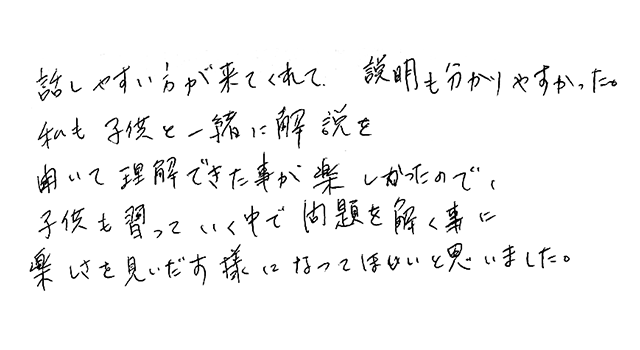 話しやすい方が来てくれて、説明も分かりやすかった。
私も子供と一緒に解説を
聞いて理解できた事が楽しかったので、
子供も習っていく中で問題を解く事に
楽しさを見いだす様になってほしいと思いました。